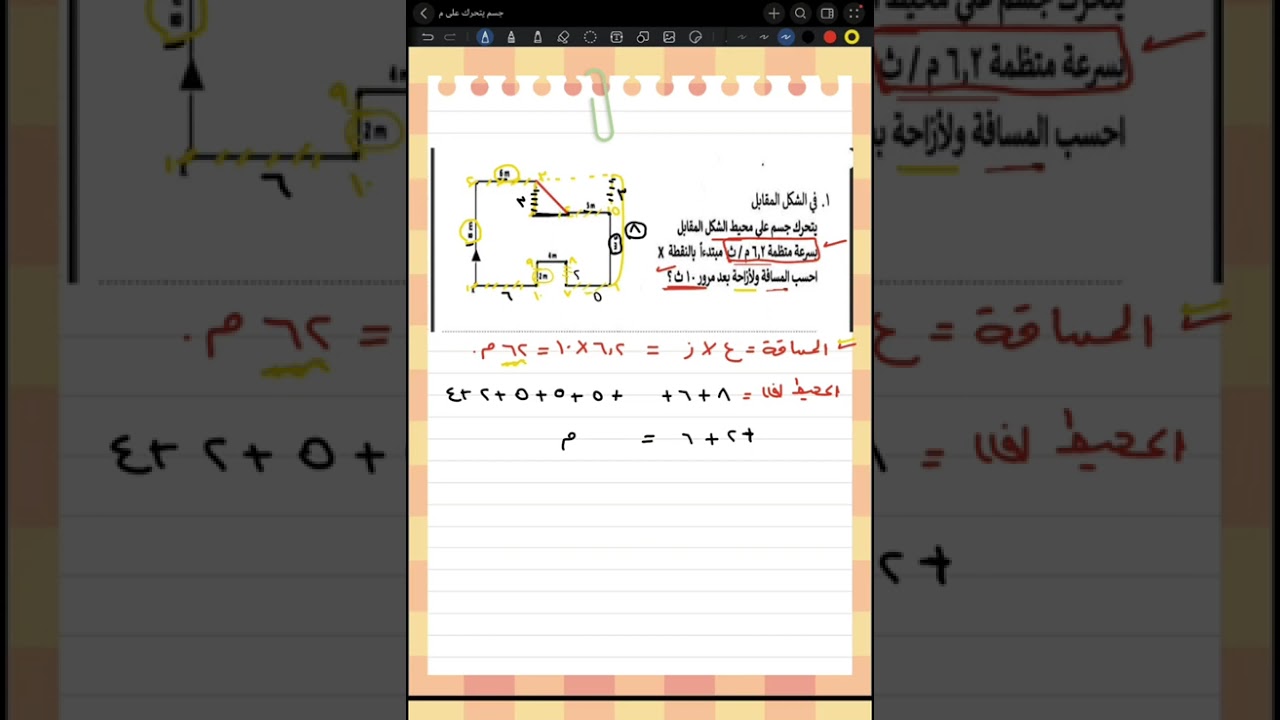 جسم يتحرك على م
١. في الشكل المقابل
يتحرك جسم علي محيط الشكل المقابل
بسرعة منتظمة ٦,٢ م / ث مبتدءاً بالنقطة X
احسب المسافة ولأزاحة بعد مرور ١٠ ث ؟
6m
3m
4m
2m
٨
٢
٦
٥
المسافة = ع × ز = ٦,٢ × ١٠ = ٦٢ م.
= ٨ + ٦ + + ٥ + ٥ + ٥ + ٢ + ٤
+ ٢ + ٦ = م